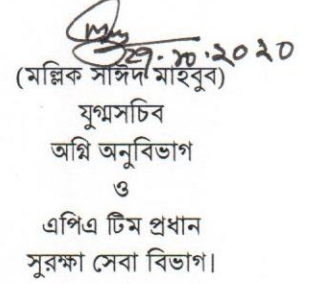 ২৯.১০.২০২০
(মল্লিক সাঈদ মাহবুব)
যুগ্মসচিব
অগ্নি অনুবিভাগ
ও
এপিএ টিম প্রধান
সুরক্ষা সেবা বিভাগ।